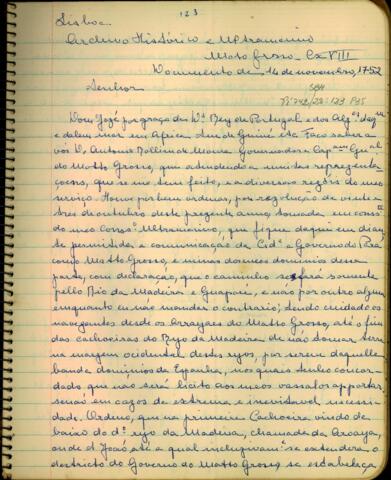 123
Lisboa
Archivo Historico e Ultramarino
Mato Grosso - Cx VIII
Documento de 14 de novembro, 1752
Senhor
Dom José por graça de Ds. Rey de Portugal e dos Alg.es daq.
e dalem mar em Africa Snr. de Guiné etc. Faço saber a
vós D. Antonio Rollim de Moura Governador e Capam. Gnal
do Matto Grosso, que attendendo a muitas representa-
çoens, que se me tem feito, e a diversas rezões do meu
serviço. Houve por bem ordenar, por rezolução de vinte e
tres de outubro deste prezente anno, tomada em consta.
do meu Conso. Ultramarino, que fique daqui em dian-
te permitida a comunicação da Cide. e Governo do Pará
com o Matto Grosso, e minas dos meus dominios dessa
parte, com declaração, que o caminho será somente
pello Rio da Madeira e Guaporé, e não por outro algum
enquanto eu não mandar o contrario; tendo cuidado os
navegantes desde os Arrayaes do Matto Grosso, até o fim
das cachoeiras do Ryo da Madeira de não tomar terra
na margem occidental destes ryos, por serem daquella
banda dominios de Espanha, nos quaes tenho concor-
dado que não será licito aos meus vassalos aportar,
senão em cazos de extrema e inevitavel necessi-
dade. Ordeno, que na primeira Cachoeira vindo de
baixo do do. ryo da Madeira, chamada de Aroaya,
ou de S. João até a qual incluzivamte. se extenderá o
destricto do Governo do Matto Grosso, se estabeleça